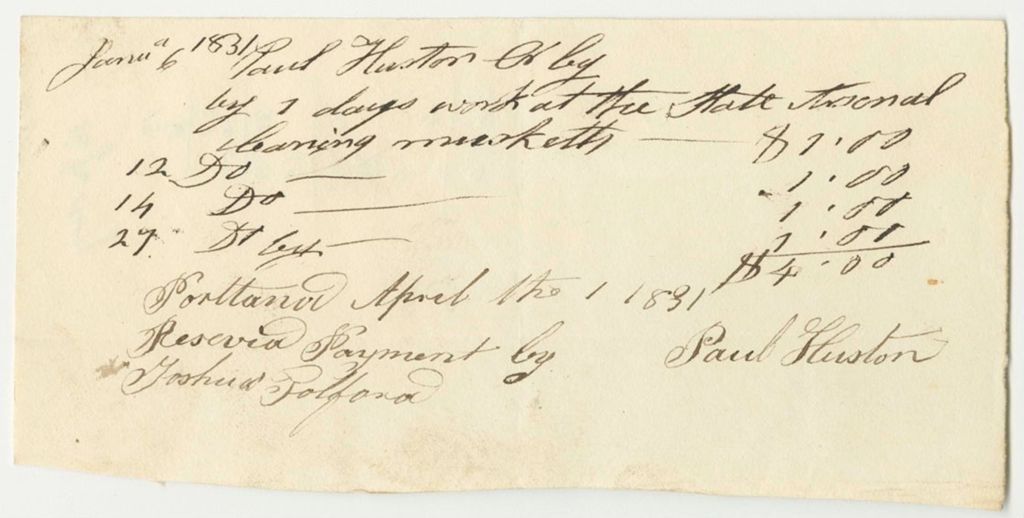 Janua 6 1831 Paul Huston Cr by
by 1 days work at the State Arsonal
cleaning musketts $1.00
12 Do 1.00
14 Do 1.00
27 Do by 1.00
$4.00
Portland April the 1 1831
Resevid Payment by Paul Huston
Joshua Tolford